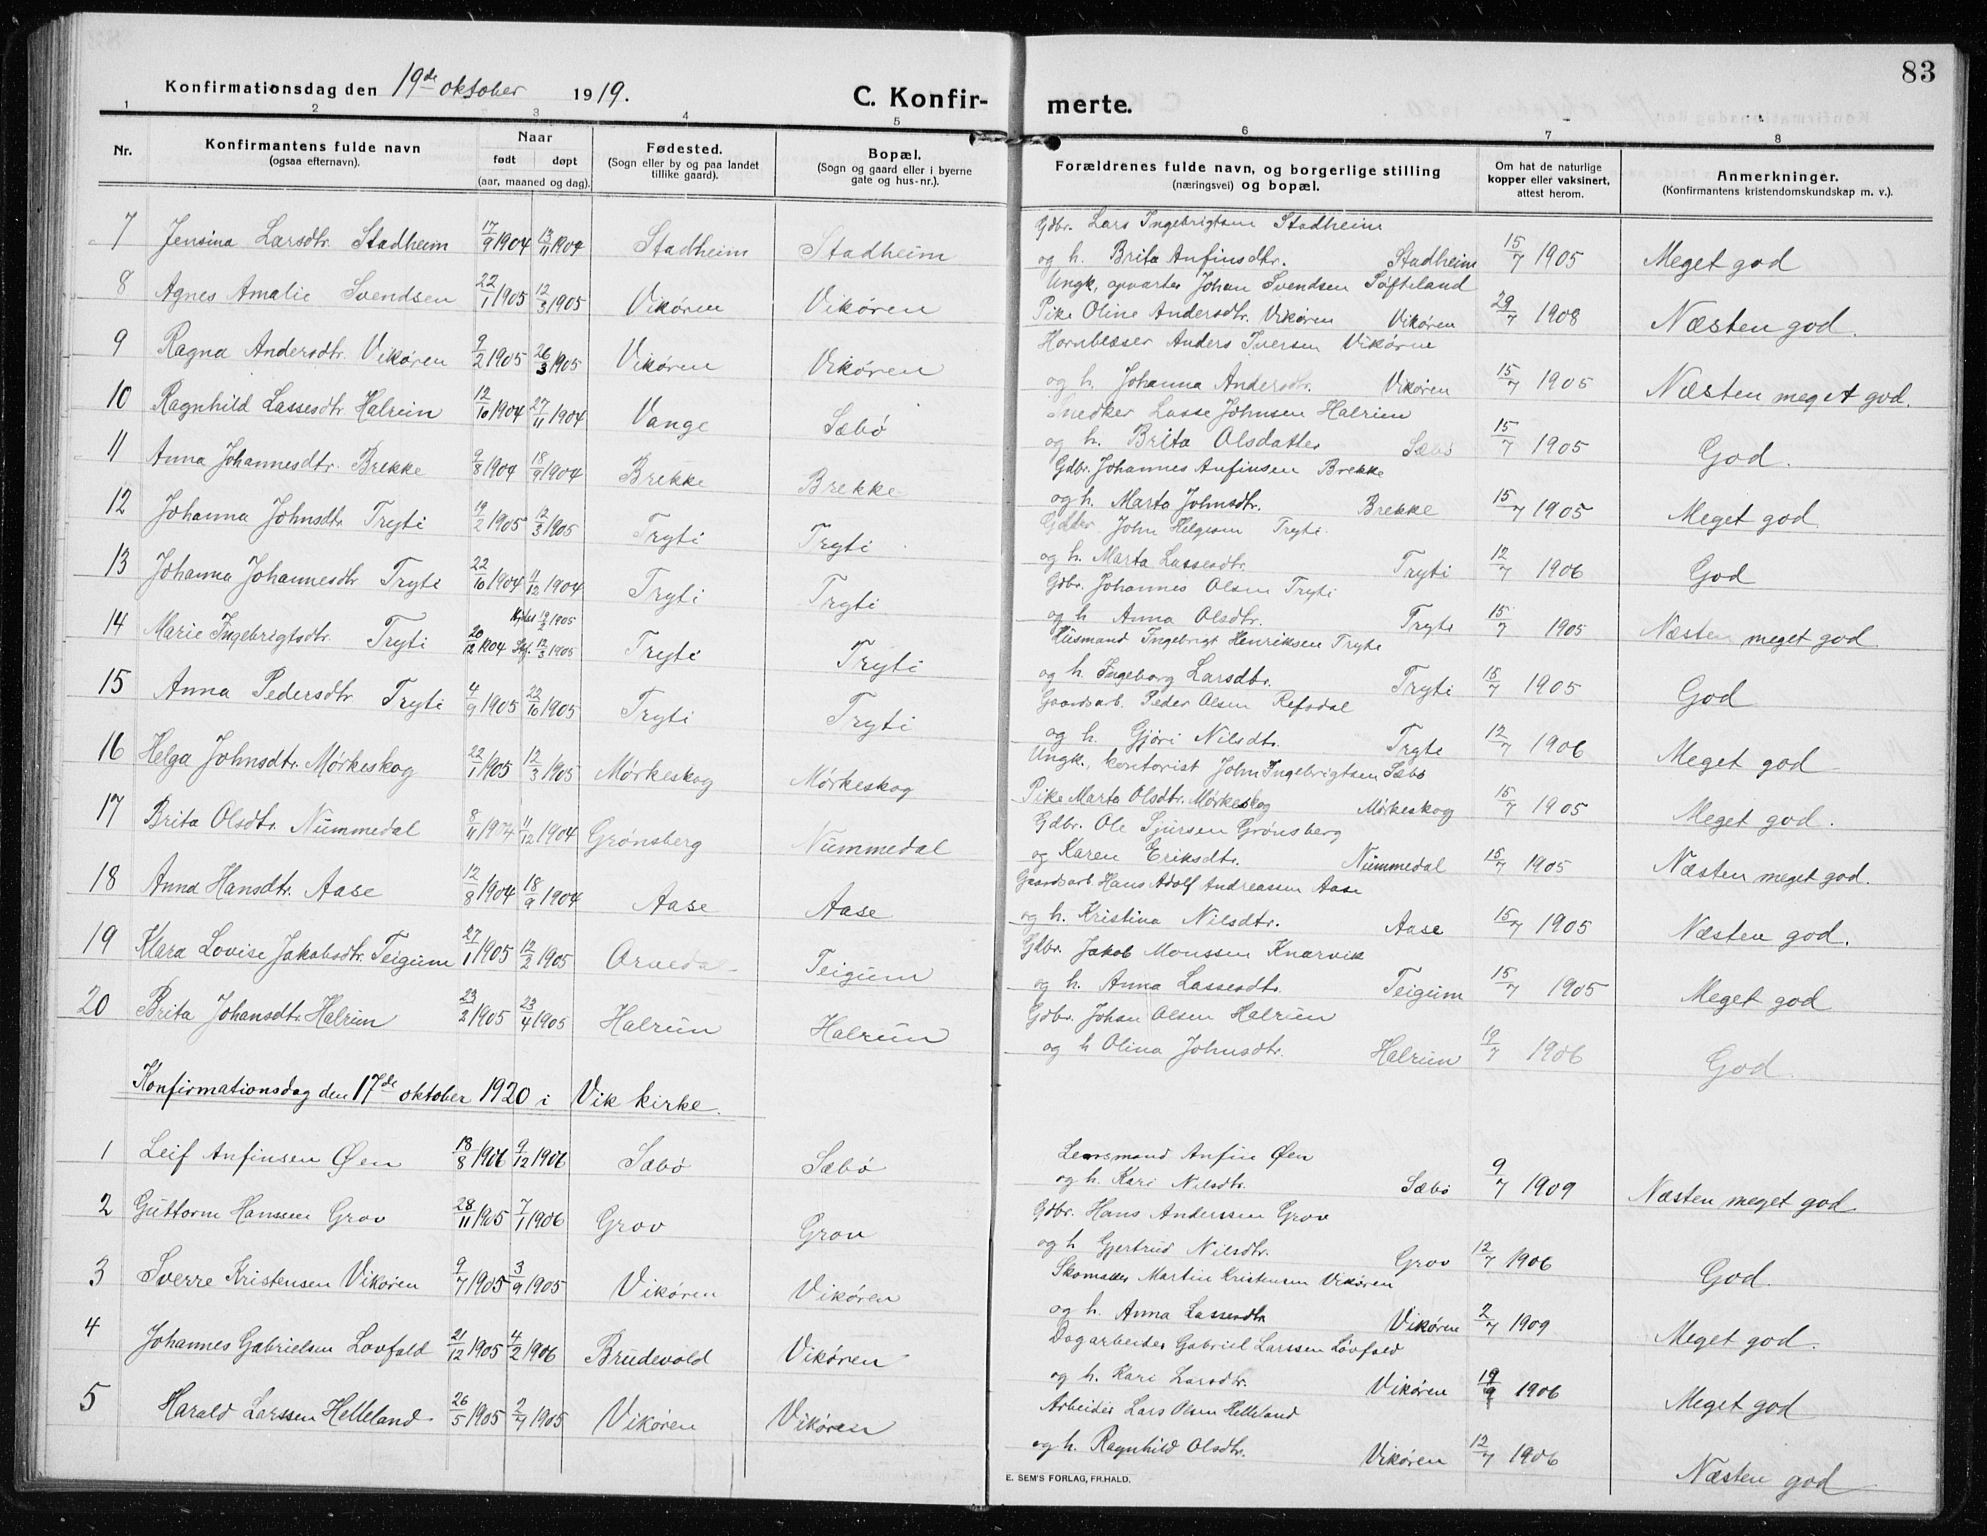 83
Konfirmationsdag den 19de oktober 1919.
C. Konfir- merte.
1 2 3 4 5 6 7 8
Nr.
Konfirmantens fulde navn
(ogsaa efternavn).
Naar
født døpt
(aar, maaned og dag).
Fødested.
(Sogn eller by og paa landet
tillike gaard).
Bopæl.
(Sogn og gaard eller i byerne
gate og hus-nr.).
Forældrenes fulde navn, og borgerlige stilling
(næringsvei) og bopæl.
Om hat de naturlige
kopper eller vaksinert,
attest herom.
Anmerkninger.
(Konfirmantens kristendomskundskap m. v.).
7 Jensina Larsdtr. Stadheim 17/9 1904 13/11 1904 Stadheim Stadheim Gdbr. Lars Ingebrigtsen Stadheim
og h. Brita Anfinsdtr. Stadheim 15/7 1905 Meget god
8 Agnes Amalie Svendsen 22/1 1905 12/3 1905 Vikøren Vikøren Ungk., opvarter Johan Svendsen Søfteland
Pike Oline Andersdtr. Vikøren Vikøren 29/7 1908 Næsten god.
9 Ragna Andersdtr. Vikøren 9/2 1905 26/3 1905 Vikøren Vikøren Hornblæser Anders Iversen Vikøren
og h. Johanna Andersdtr. Vikøren 15/7 1905 Næsten meget god.
10 Ragnhild Lassesdtr Halrein 12/10 1904 27/11 1904 Vange Sæbø Snedker Lasse Johnsen Halrein
og h. Brita Olsdatter Sæbø 15/7 1905 God.
11 Anna Johannesdtr. Brekke 9/8 1904 18/9 1904 Brekke Brekke Gdbr. Johannes Anfinsen Brekke
og h. Marta Johnsdtr. Brekke 15/7 1905 Meget god.
12 Johanna Johnsdtr Tryti 19/2 1905 12/3 1905 Tryti Tryti John Helgesen Tryti
og h. Marta Lassesdtr. Tryti 12/7 1906 God
13 Johanna Johannesdtr Tryti 22/10 1904 11/12 1904 Tryti Tryti Gdbr. Johannes Olsen Tryti
og h. Anna Olsdtr. Tryti 15/7 1905 Næsten meget god
14 Marie Ingebrigtsdtr. Tryti 20/12 1904 12/3 1905 Tryti Tryti Husmand Ingebrigt Henriksen Tryti
og h. Ingeborg Larsdtr. Tryti 15/7 1905 God
15 Anna Pedersdtr. Tryti 4/9 1905 22/10 1905 Tryti Tryti Gaardsarb. Peder Olsen Refsdal
og h. Gjøri Nilsdtr. Tryti 12/7 1906 Meget god
16 Helga Johnsdtr. Mørkeskog 22/1 1905 12/3 1905 Mørkeskog Mørkeskog Ungk., kontorist John Ingebrigtsen Sæbø
Pike Marta Olsdtr. Mørkeskog Mørkeskog 15/7 1905 Meget god.
17 Brita Olsdtr. Nummedal 8/11 1904 11/12 1904 Grønsberg Nummedal Gdbr. Ole Sjursen Grønsberg
og Karen Eriksdtr. Nummedal 15/7 1905 Næsten meget god.
18 Anna Hansdtr. Aase 12/8 1904 18/9 1904 Aase Aase Gaardsarb. Hans Adolf Andreassen Aase
og h. Kristina Nilsdtr. Aase 15/7 1905 Næsten god.
19 Klara Lovise Jakobsdtr. Teigum 27/1 1905 12/2 1905 Teigum Gdbr. Jakob Monssen Knarvik
og h. Anna Lassesdtr. Teigum 15/7 1905 Meget god
20 Brita Johansdtr. Halrein 23/2 1905 23/4 1905 Halrein Halrein Gdbr. Johan Olsen Halrein
og h Olina Johnsdtr. Halrein 19/7 1906 God.
Konfirmationsdag den 17de oktober 1920 i Vik kirke.
1 Leif Anfinsen Øen 18/8 1906 9/12 1906 Sæbø Sæbø Lensmand Anfin Øen
og h. Kari Nilsdtr. Sæbø 9/7 1909 Næsten meget god
2 Guttorm Hanssen Grov 28/11 1905 7/1 1906 Grov Grov Gdbr. Hans Anderssen Grov
og h Gjertrud Nilsdtr. Grov 12/7 1906 God.
3 Sverre Kristensen Vikøren 9/7 1905 3/9 1905 Vikøren Vikøren Skomaker Martin Kristensen Vikøren
og h. Anna Lassesdtr Vikøren 2/7 1909 Meget god.
4 Johannes Gabrielsen Lovfald 21/12 1905 4/2 1906 Brudevold Vikøren Dagarbeider Gabriel Larssen Løvfald
og h. Kari Larsdtr. Vikøren 1906 Meget god
5 Harald Larssen Helleland 26/5 1905 2/7 1905 Vikøren Vikøren Arbeider Lars Olsen Helleland
og h. Ragnhild Olsdtr. Vikøren 12/7 1906 Næsten god
E. SEM'S FORLAG, FR.HALD.